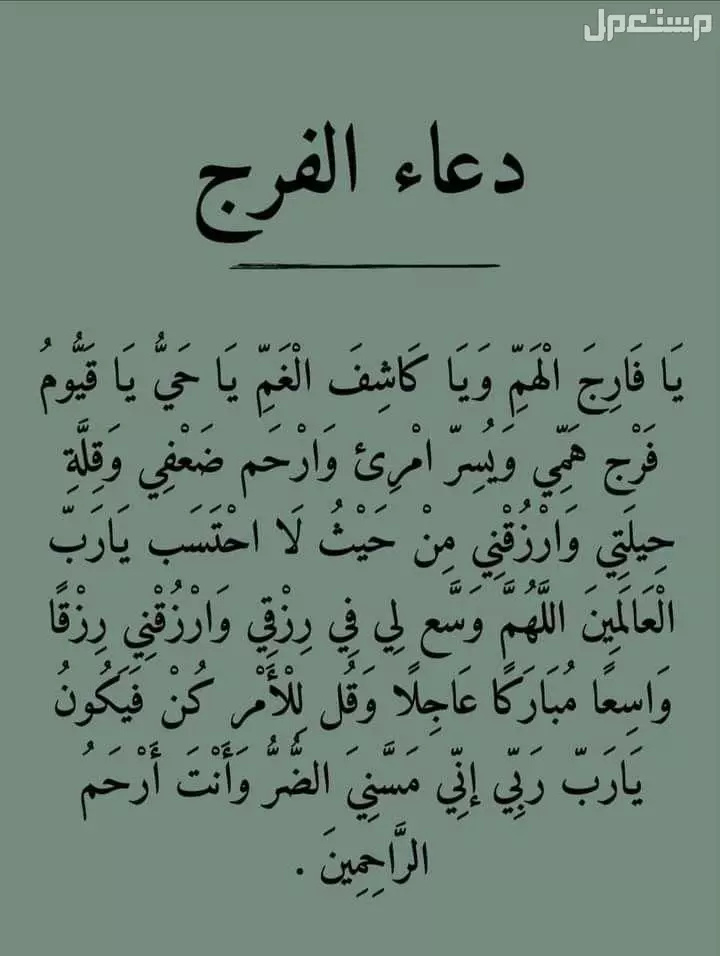 مستعمل
دعاء الفرج
يَا فَارِجَ الْهَمِّ وَيَا كَاشِفَ الْغَمِّ يَا حَيُّ يَا قَيُّومُ
فَرْج هَمِّي وَيُسِرّ امْرِئ وَارْحَم ضَعْفِي وَقِلَّةِ
حِيلَتِي وَارْزُقْنِي مِنْ حَيْثُ لَا احْتَسَب يَارَبّ
الْعَالَمِينَ اللَّهُمَّ وَسَّع لِي فِي رِزْقِي وَارْزُقْنِي رِزْقًا
وَاسِعًا مُبَارَكًا عَاجِلًا وَقُل لِلْأَمْر كُنْ فَيَكُونُ
يَارَبّ رَبِّي إنِّي مَسَّنِيَ الضُّرُّ وَأَنْتَ أَرْحَمُ
الرَّاحِمِينَ .